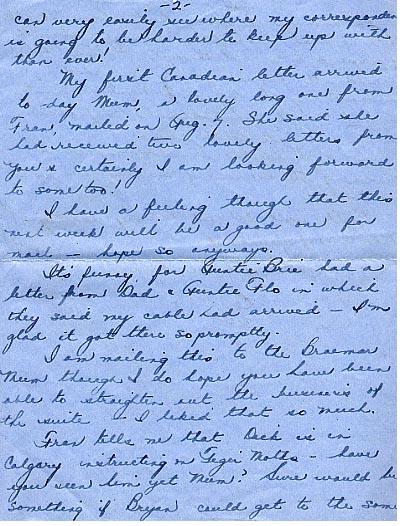 -2-
can very easily see where my corresponden
is going to be harder to keep up with
than ever!
My first Canadian letter arrived
to-day Mum, a lovely long one from
Fran, mailed on Aug. 7. She said she
had received two lovely letters from
you & certainly I am looking forward
to some too!
I have a feeling though that this
next week will be a good one for
mail - hope so anyways.
It's funny for Auntie Brie had a
letter from Dad & Auntie Flo in which
they said my cable had arrived - I'm
glad it got there so promptly.
I am mailing this to the Braemar
Mum though I do hope you have been
able to straighten out the business of
the suite - I liked that so much.
Fran tells me that Dick is in
Calgary instructing on Tiger Moths - have
you seen him yet Mum? Sure would be
something if Bryan could get to the same